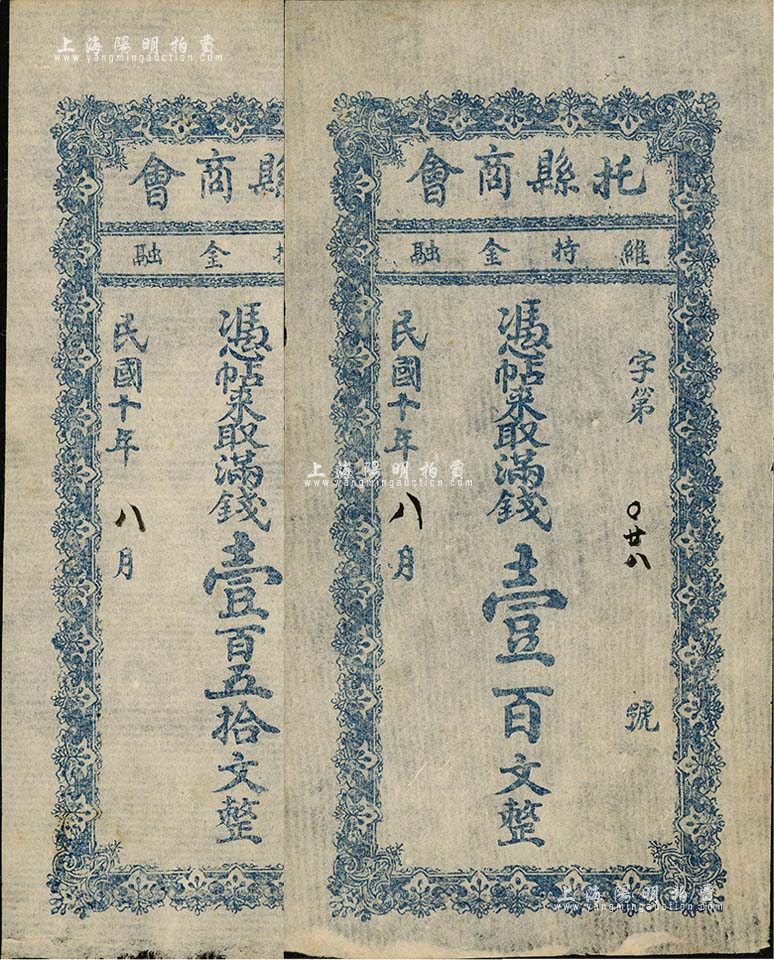 上海陽明拍賣
www.yangmingauction.com
會商縣
融金持
憑帖來取滿錢壹百五拾文整
民國十年八月
會商縣托
融金持維
字第〇廿八號
憑帖來取滿錢壹百文整
民國十年八月
上海陽明拍賣
www.yangmingauction.com
上海陽明拍賣
www.yangmingauction.com